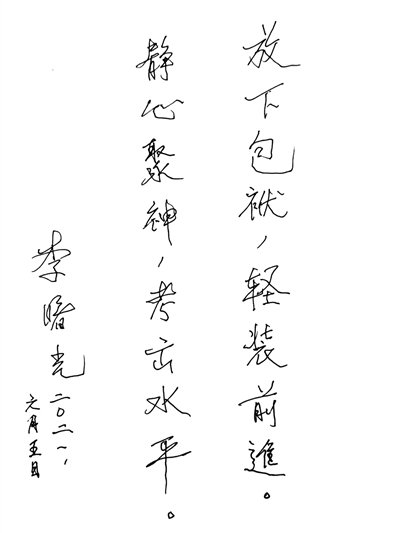 放下包袱，轻装前進。
静心聚神，考出水平。
李曙光
二〇二一、
元月五日